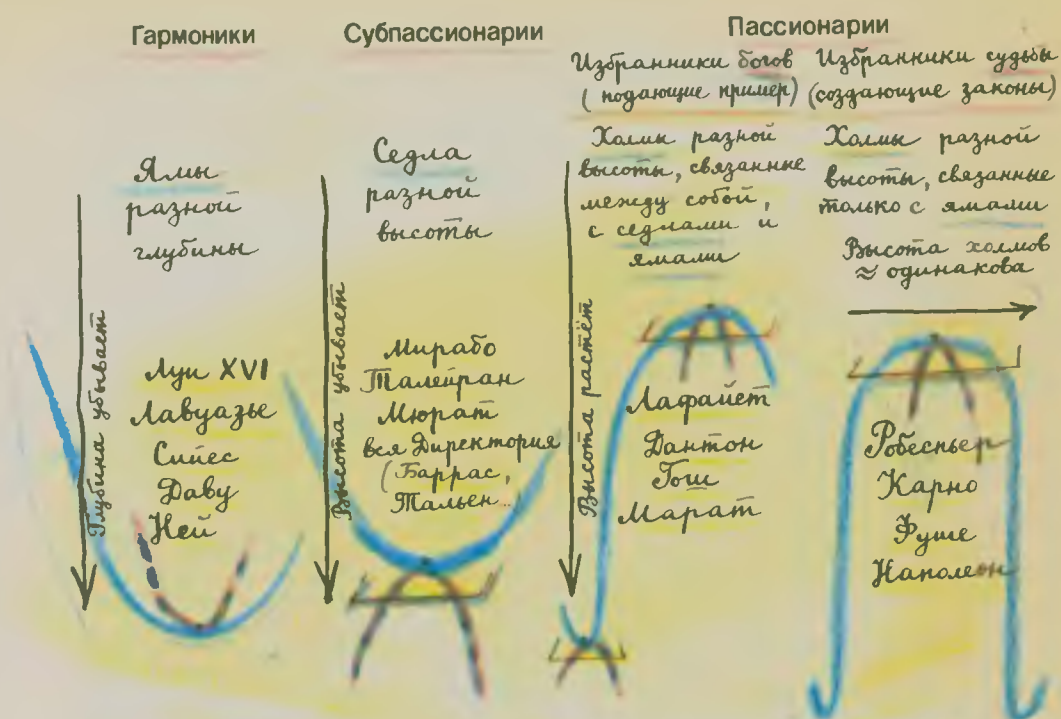 Гармоники
Ямы
разной
глубины
Глубина убывает
Луи XVI
Лавуазье
Сийес
Даву
Ней
Субпассионарии
Седла
разной
высоты
Высота убывает
Мирабо
Талейран
Мюрат
вся Директория
(Баррас,
Тальен...)
Пассионарии
Избранники богов
(подающие пример)
Холмы разной
высоты, связанные
между собой,
с седлами и
ямами
Высота растёт
Лафайет
Дантон
Гош
Марат
Избранники судьбы
(создающие законы)
Холмы разной
высоты, связанные
только с ямами
Высота холмов
≈ одинакова
Робеспьер
Карно
Фуше
Наполеон